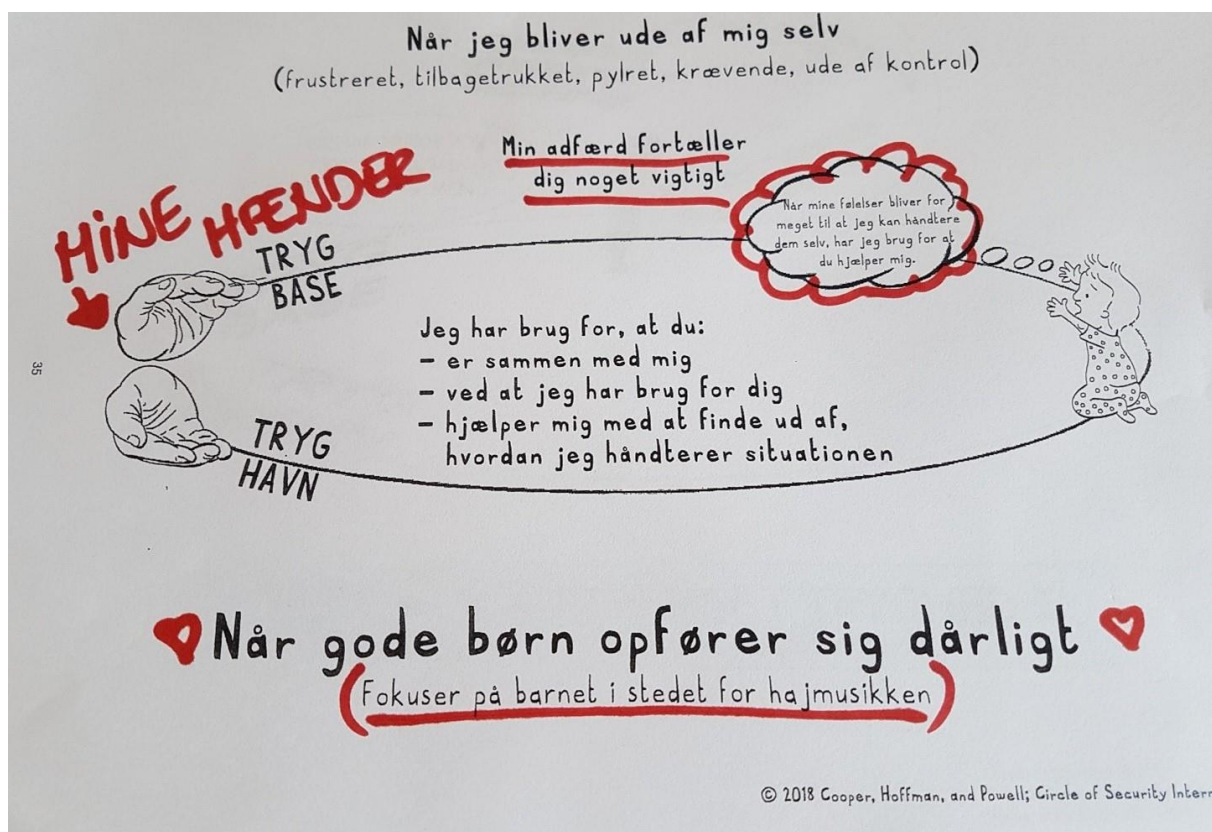 Når jeg bliver ude af mig selv
(frustreret, tilbagetrukket, pylret, krævende, ude af kontrol)
Min adfærd fortæller
dig noget vigtigt
MINE HÆNDER
Når mine følelser bliver for
meget til at jeg kan håndtere
dem selv, har jeg brug for at
du hjælper mig.
TRYG
BASE
Jeg har brug for, at du:
– er sammen med mig
– ved at jeg har brug for dig
– hjælper mig med at finde ud af,
hvordan jeg håndterer situationen
35
TRYG
HAVN
Når gode børn opfører sig dårligt
(Fokuser på barnet i stedet for hajmusikken)
© 2018 Cooper, Hoffman, and Powell; Circle of Security Intern